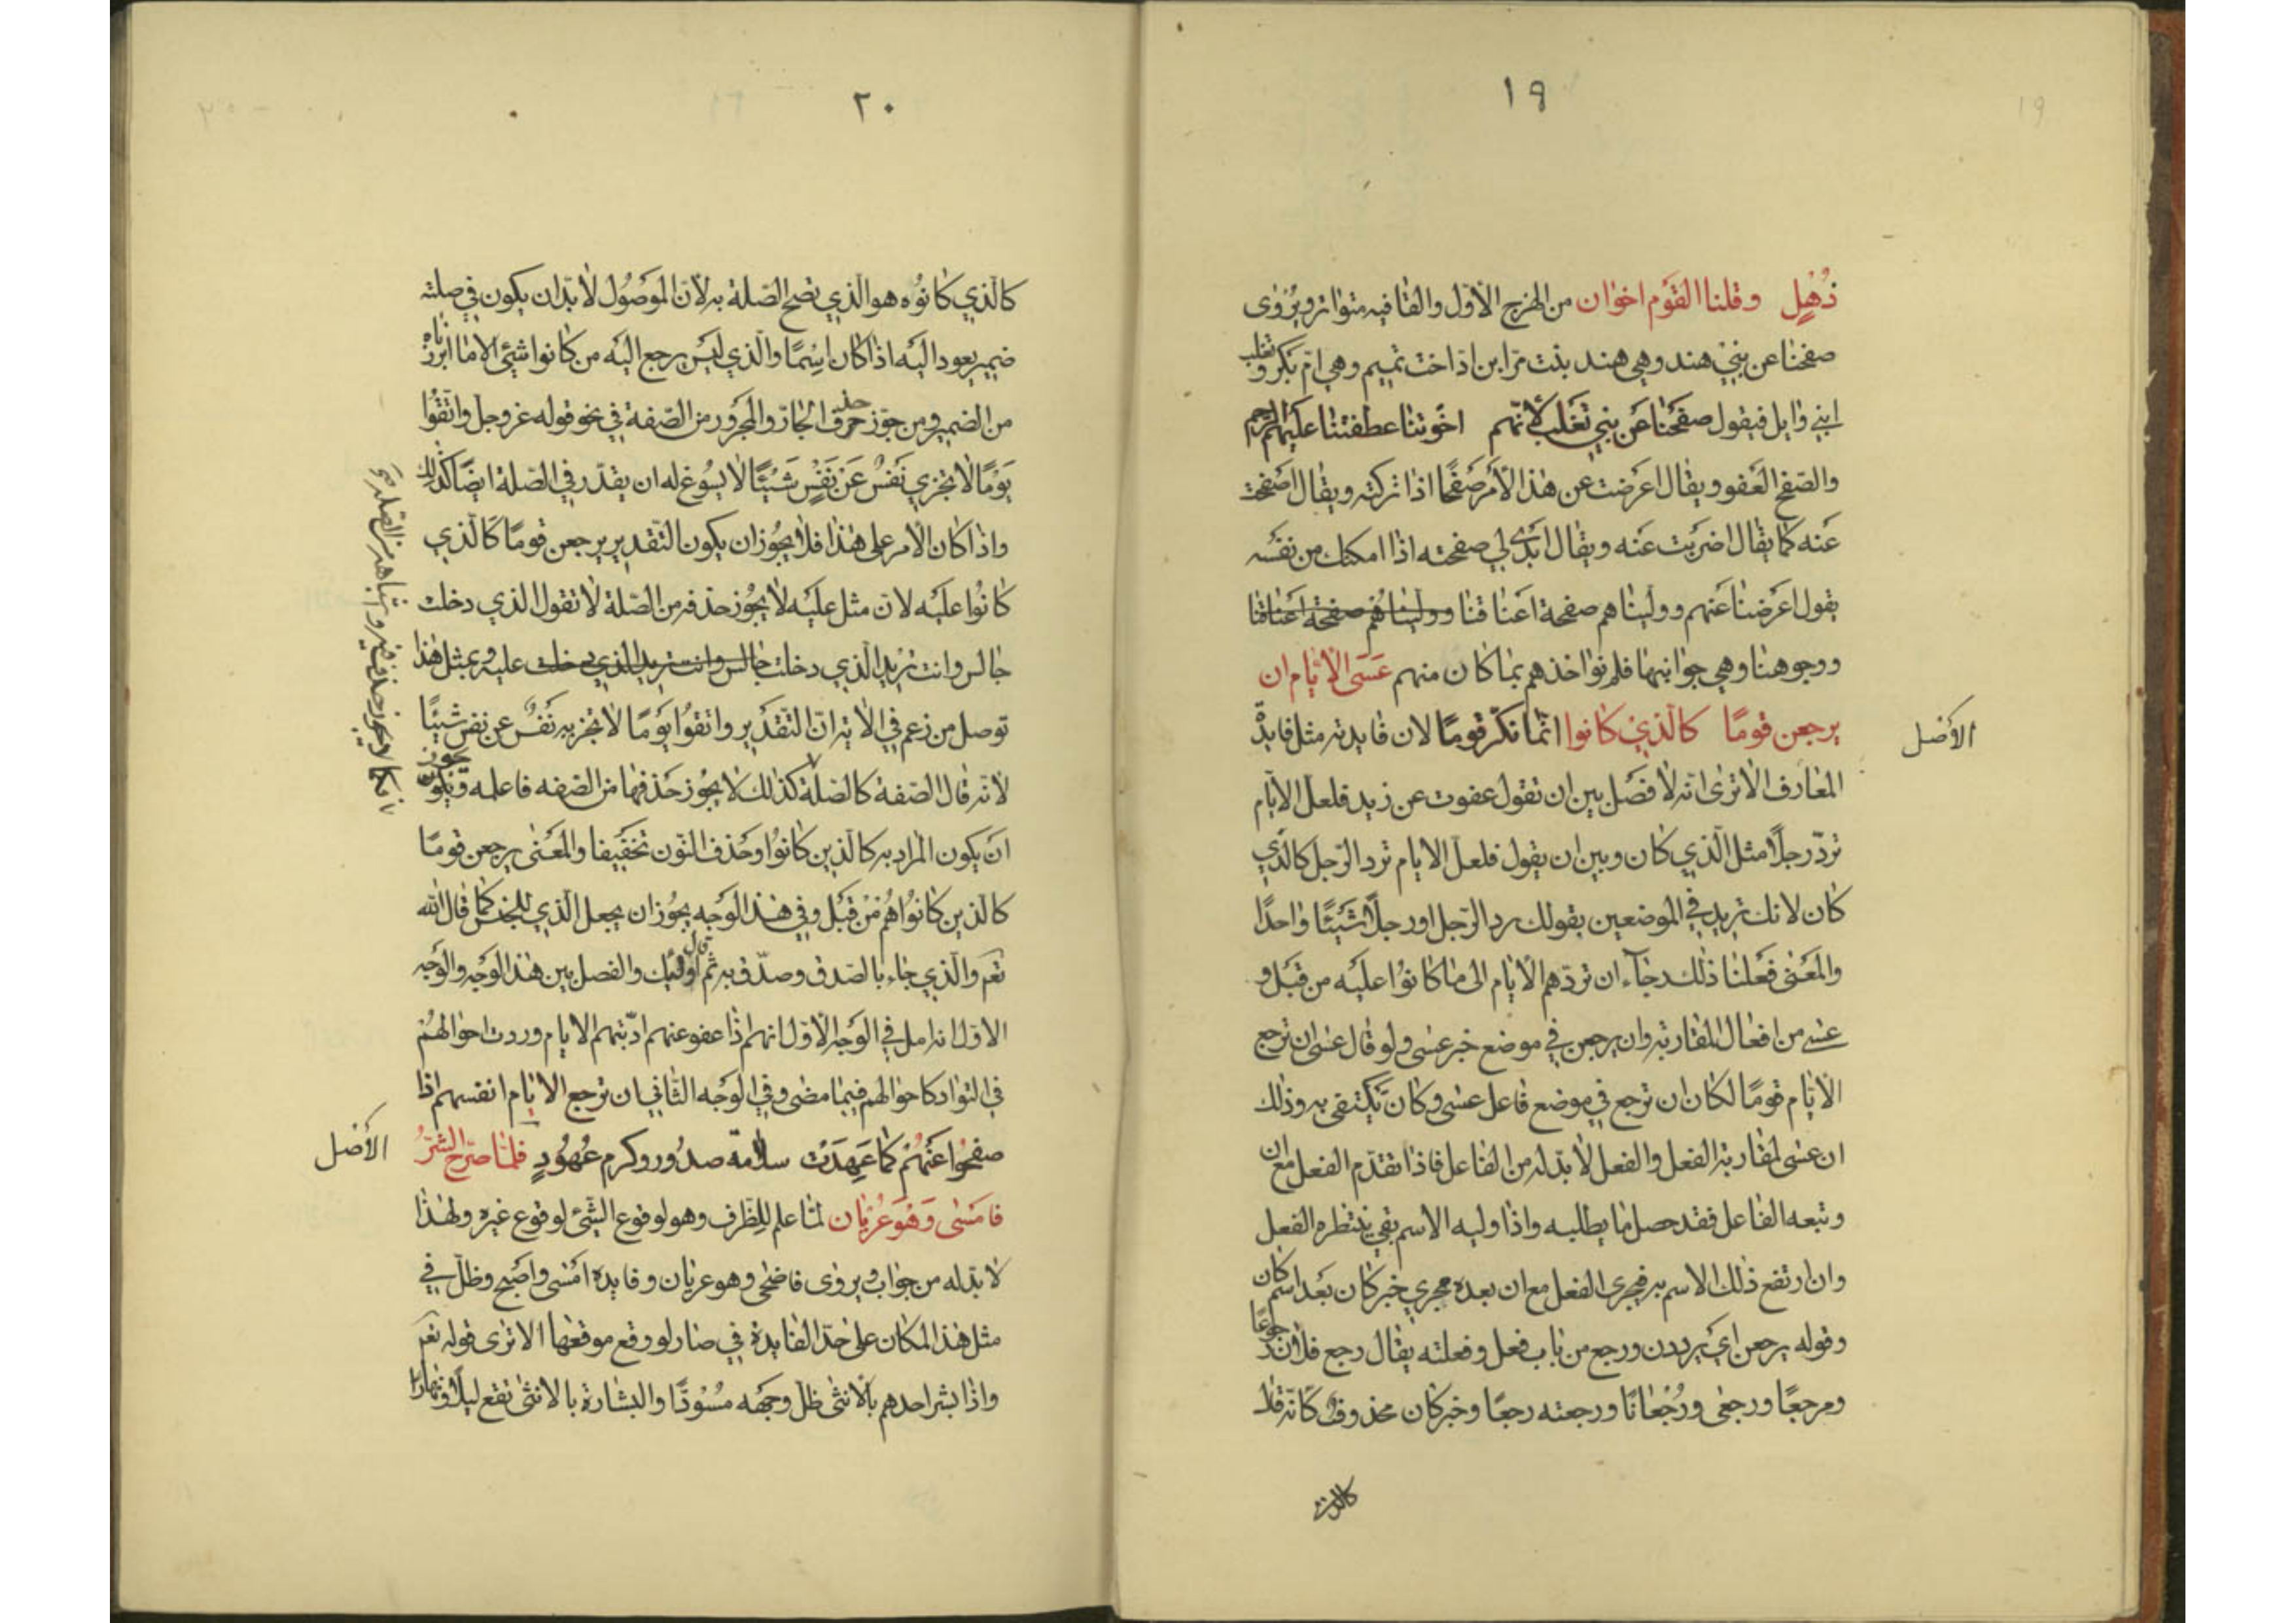 ١٩
ذُهْلٍ وقلنا القَوْم اخوان من الهزج الأوّل والقافيه متواتر ويُرْوٰى
صفحنا عن بني هند وهي هند بنت مرّ ابن ادّ اخت تميم وهي امّ بكر وتغلب
ابني وايل فيقول صفَحْنا عَن بني تَغلب لأنّهم اخوتنا عطفتنا عليهم الرحم
والصّفح العَفو ويقال اعرضت عن هذا الأمر صَفْحًا اذا تركته ويقال اصفحت
عَنه كما يقال اضربت عنه ويقال ابدٰى لي صفحته اذا امكنك من نفسه
يقول اعرضنا عنهم وولّيناهم صفحة اعناقنا وولّيناهُم صفحة اعناقنا
ووجوهنا وهي جوانبها فلم نؤاخذهم بما كان منهم عَسَى الأيّام ان
يرجعن قومًا كالذيْ كانوا انّما نكّر قومًا لان فايدته مثل فايدة
الأصل
المعارف الا ترٰى انّه لا فصَل بين ان تقول عفوت عن زيد فلعل الايام
تردّ رجلًا مثل الّذي كان وبين ان يقول فلعل الايام ترد الرّجل كالّذي
كان لانك تريد في الموضعين بقولك رد الرّجل او رجلًا شَيْئًا واحدًا
والمَعْنٰى فعَلنا ذلك رجآء ان تردّهم الأيام الى ما كانوُا عليَه من قَبَل و
عسٰى من افعال المقاربة وان يرجعن في موضع خبر عسٰى ولو قال عسٰى ان ترجع
الأيّام قومًا لكان ان ترجع في موضع فاعل عسٰى وكان يكتفى به وذلك
ان عسٰى لمقاربة الفعل والفعل لأ بدّ له من الفاعل فاذا تقدّم الفعل مع ان
وتبعه الفاعل فقد حصل ما يطلبه واذا وليه الاسم بقي ينتظره الفعل
وان ارتفع ذلك الاسم به فيجرى الفعل مع ان بعده مجرى خبر كان بَعد اسم كان
وقوله يرجعن اي يرددن ورجع من باب فعل وفعلته يقال رجع فلان رجوعًا
ومرجعًا ورجعٰى ورُجْعانًا ورجعته رجعًا وخبر كان محذوف كانّه قال
كالذي
٢٠
كالّذي كانوُه هو الّذي تصح الصّلة به لأن الموَصُول لا بدّ ان يكون في صلته
ضمير يعود اليَه اذا كان اسْمًا والّذي ليسَ يرجع اليَه من كانوا شيْئ الّا ما ابرزناه
من الضمير ومن جوّز حذف حرف الجارّ والمجرور من الصّفة في نحو قوله عزوجل واتّقوُا
يَوْمًا لا تجزي نَفسٌ عَنْ نَفسٍ شَيْئًا لا يسوُغ له ان يقدّر في الصّلة ايضًا كذلك
واذا كان الأمر على هذا فلا يجُوز ان يكون التّقدير يرجعن قومًا كالّذي
كانوُا عليَه لان مثل عليَه لأ يجُوز حذفه من الصّلة لا تقول الذي دخلت
جالس وانت تريد الّذي دخلت جالس وانت تريد الذي دخلت عليه وبمثل هذا
توصل من زعم في الأية انّ التّقدَير واتقوُا يوَمًا لا تجزيه نَفسٌ عن نفسٍ شيئًا
لأنّه قال الصّفة كالصّلة كذلك لا يجُوز حَذفها من الصّفه فاعلمه ويجوز
ان يكون المراد به كالّذين كانوُا وحَذف النّون تخفيفا والمَعْنٰى يرجعن قومًا
كالّذين كانوُا هُمْ مْن قَبل وفي هذا الوَجه يجُوز ان يجعل الّذي للجنس كما قال الله
تعٰم والّذي جاء بالصّدق وصدّق به ثم قال اولئك والفصل بين هذا الوَجه والوَجه
الأوّل انّه امل في الوَجه الأوّل انهم اذا عفو عنهم ادّبتهم الايام وردت احوالهُمْ
في التّوادّ كاحوالهم فيما مضٰى وفي الوَجه الثّاني ان ترجع الايام انفسهم اذا
صفحُوا عَنهُمْ كما عَهِدَتْ سلامة صدُور وكرم عهُودٍ فلمّا صرّح الشّرُّ
الأصل
فامَسٰى وَهْوَ عُرْيان لمّا علم للظّرف وهو لوقوع الشّيْئ لوقوع غيره ولهذا
لا بدّ له من جواب ويروٰى فاضحٰى وهو عريان وفايدة امْسٰى واصَبح وظلّ في
مثل هذا المكان على حدّ الفايدة في صار لو وقع موقعها الا ترٰى قوله تعٰم
واذا بشّر احدهم بالأنثٰى ظلّ وجهَه مسْوَدًّا والبشارة بالانثٰى تقع ليلًا ونهارًا